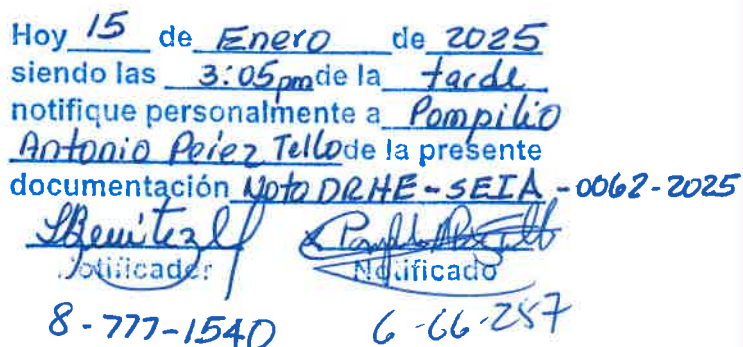 Hoy 15 de Enero de 2025
siendo las 3:05 pm de la tarde
notifique personalmente a Pompilio
Antonio Perez Tello de la presente
documentación Nota DRHE-SEIA-0062-2025
Notificador Notificado
8-777-1540 6-66-257